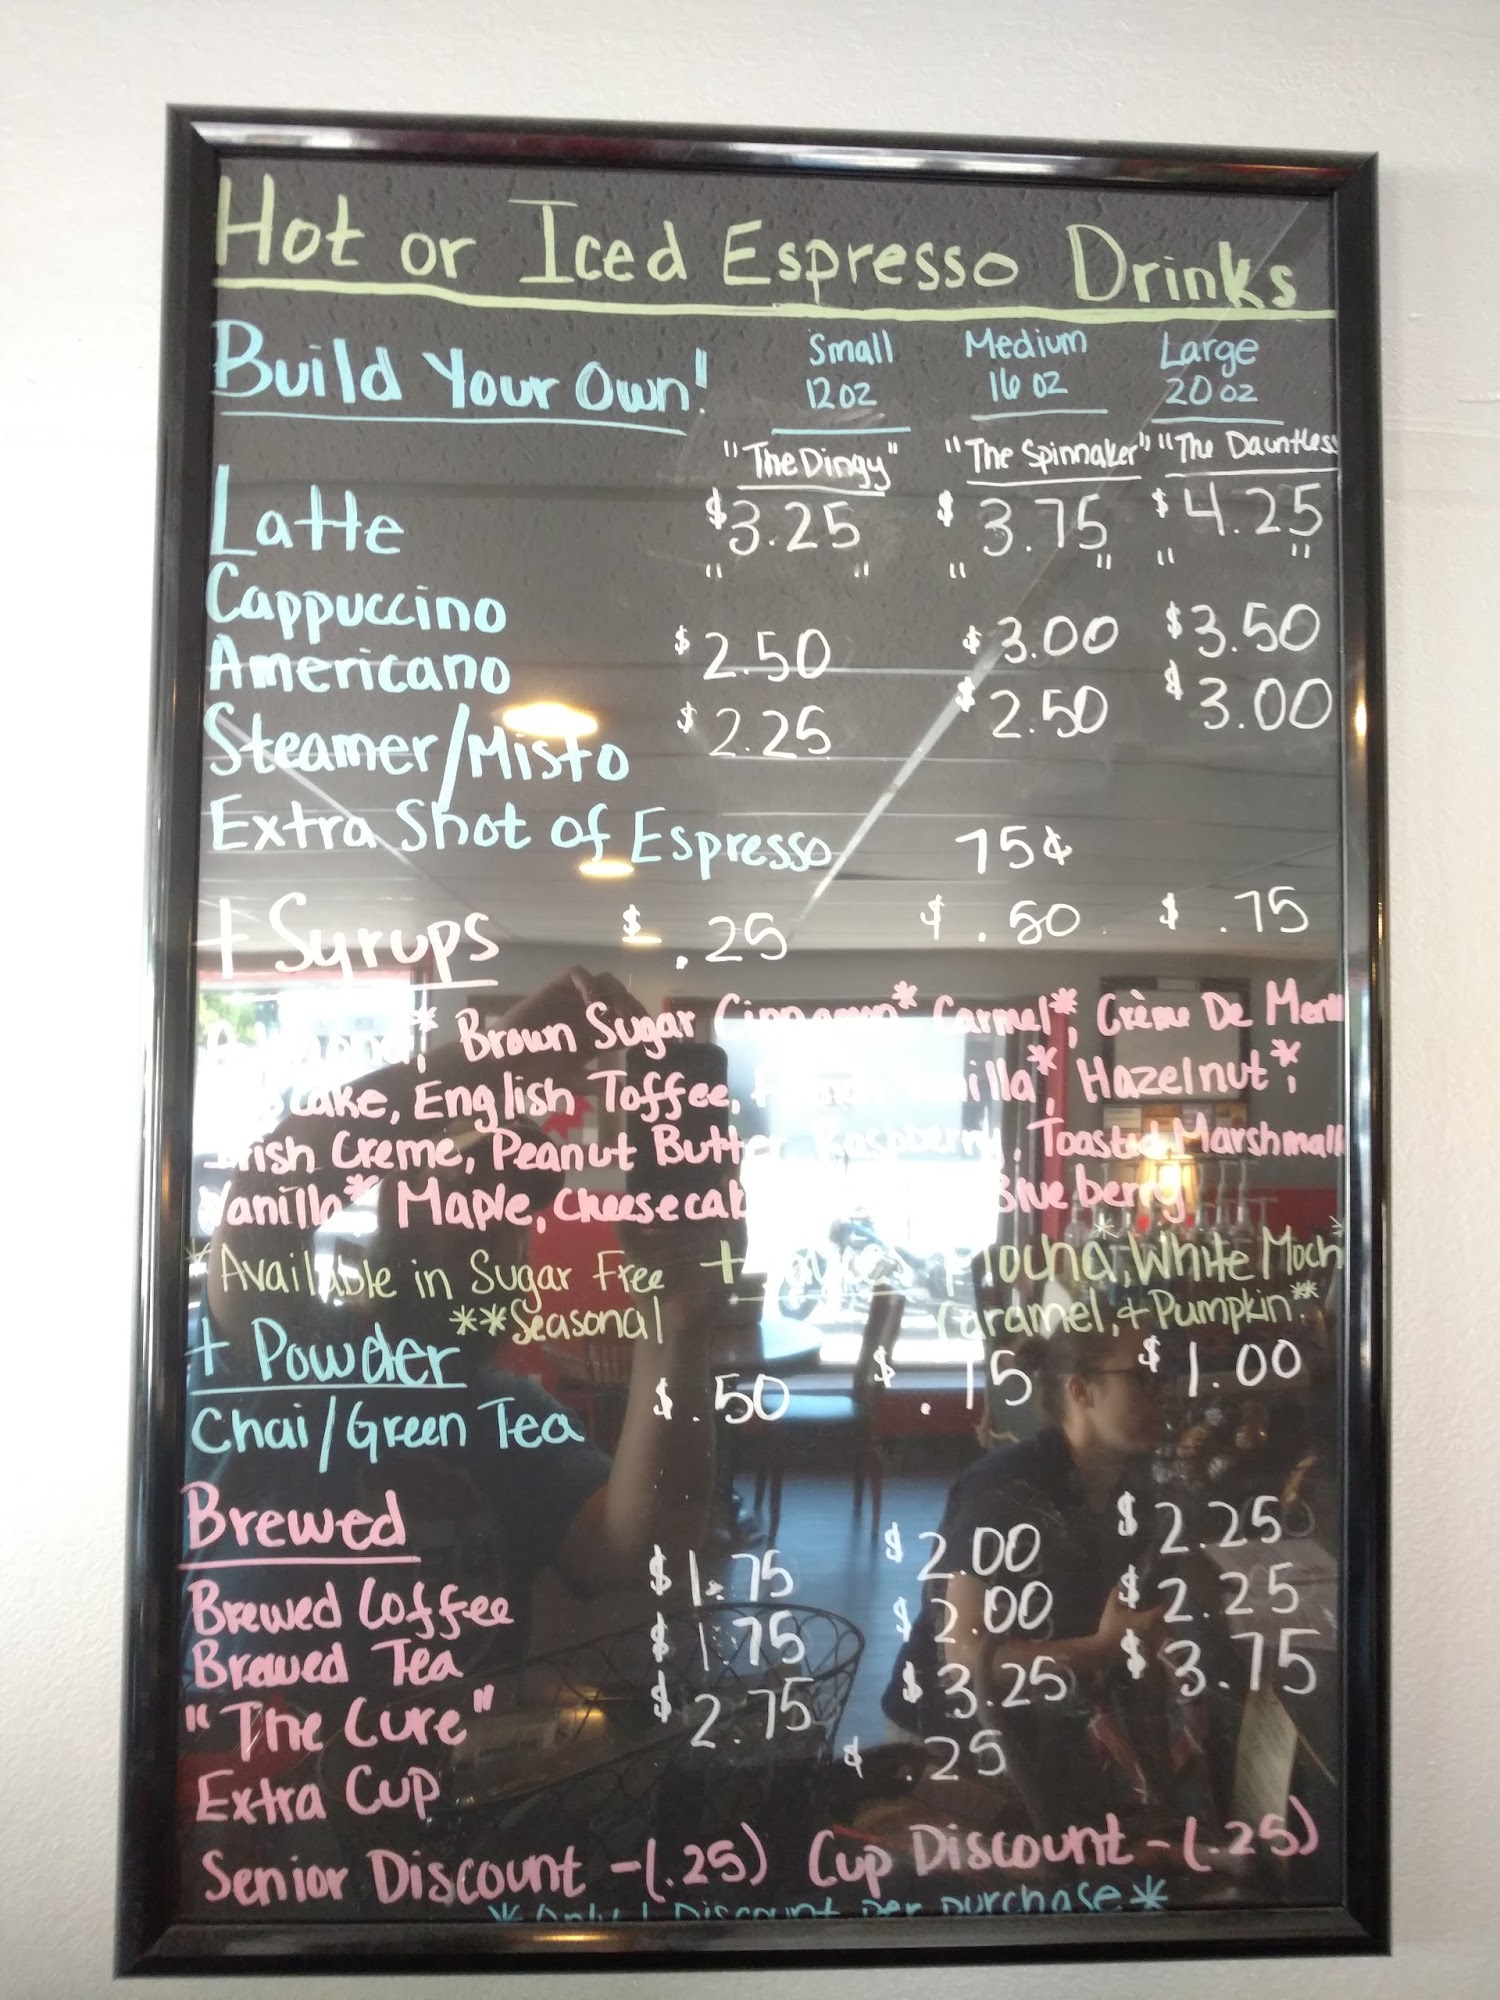 Hot or Iced Espresso Drinks
Build Your Own! Small Medium Large
12 oz 16 oz 20 oz
"The Dingy" "The Spinnaker" "The Dauntless
Latte $3.25 $3.75 $4.25
Cappuccino " " " " " "
Americano $2.50 $3.00 $3.50
Steamer/Misto $2.25 $2.50 $3.00
Extra Shot of Espresso 75¢
+ Syrups $.25 $.50 $.75
Brown Sugar Cinnamon* Carmel*, Crème De Men
English Toffee, Hazelnut*,
Irish Creme, Peanut Butter Raspberry, Toasted Marshmall
Vanilla* Maple, Cheesecak Blueberry
*Available in Sugar Free + Sauces Mocha*, White Moch
**Seasonal Caramel, + Pumpkin**
+ Powder
Chai/Green Tea $.50 $.75 $1.00
Brewed
Brewed Coffee $1.75 $2.00 $2.25
Brewed Tea $1.75 $2.00 $2.25
"The Cure" $2.75 $3.25 $3.75
Extra Cup .25
Senior Discount -(.25) Cup Discount -(.25)
*Only 1 Discount per purchase*